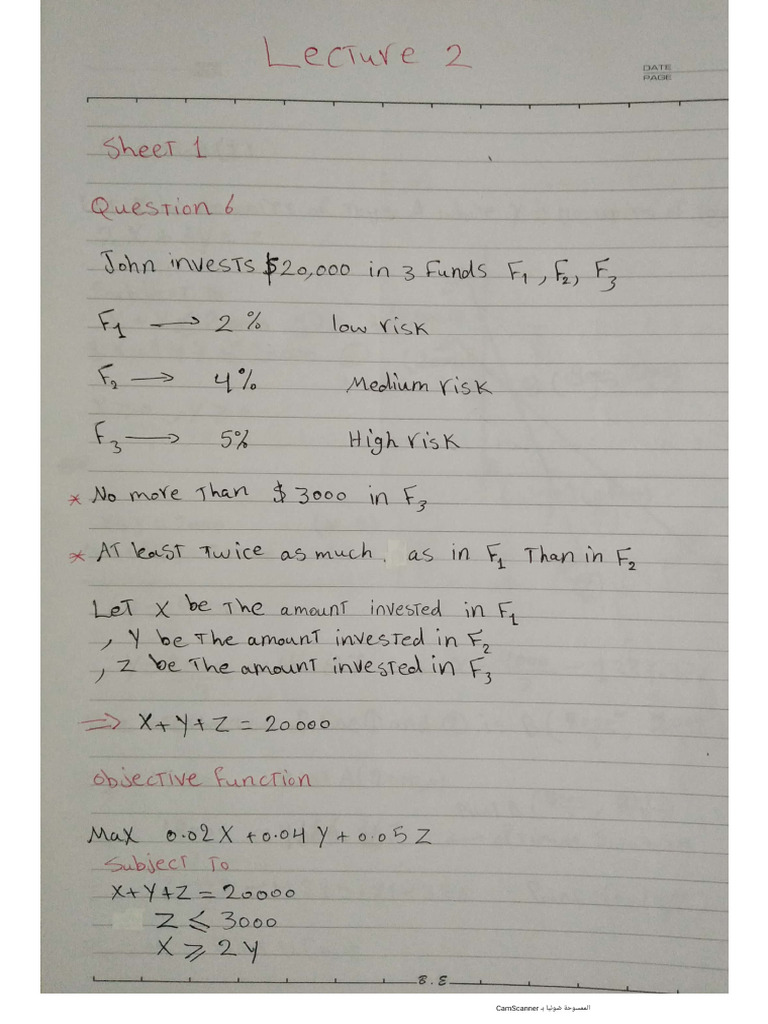 Lecture 2
DATE
PAGE
Sheet 1
Question 6
John invests $20,000 in 3 Funds F₁, F₂, F₃
F₁ → 2% low risk
F₂ → 4% Medium risk
F₃ → 5% High risk
* No more Than $3000 in F₃
* At least Twice as much as in F₁ Than in F₂
Let X be The amount invested in F₁
, Y be The amount invested in F₂
, Z be The amount invested in F₃
⇒ X+Y+Z = 20000
Objective Function
Max 0.02X + 0.04Y + 0.05Z
Subject To
X+Y+Z = 20000
Z ≤ 3000
X ≥ 2Y
B.E
الممسوحة ضوئيا بـ CamScanner